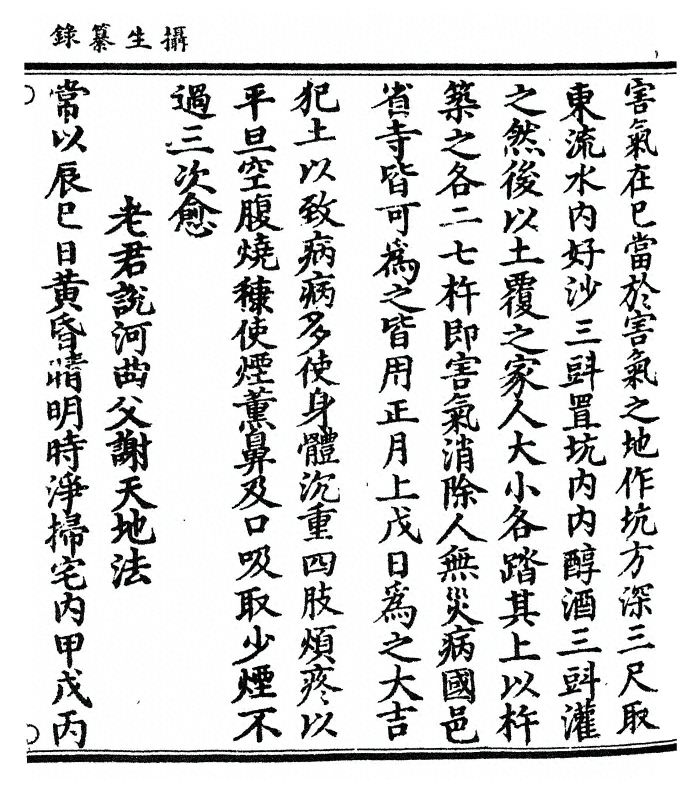 攝生纂錄
害氣在巳當於害氣之地作坑方深三尺取
東流水內好沙三㪷置坑內內醇酒三㪷灌
之然後以土覆之家人大小各踏其上以杵
築之各二七杵即害氣消除人無災病國邑
省寺皆可爲之皆用正月上戊日爲之大吉
犯土以致病病多使身體沉重四肢煩疼以
平旦空腹燒穅使煙薰鼻及口吸取少煙不
過三次愈
老君說河曲父謝天地法
常以辰巳日黄昏晴明時淨掃宅內甲戊丙